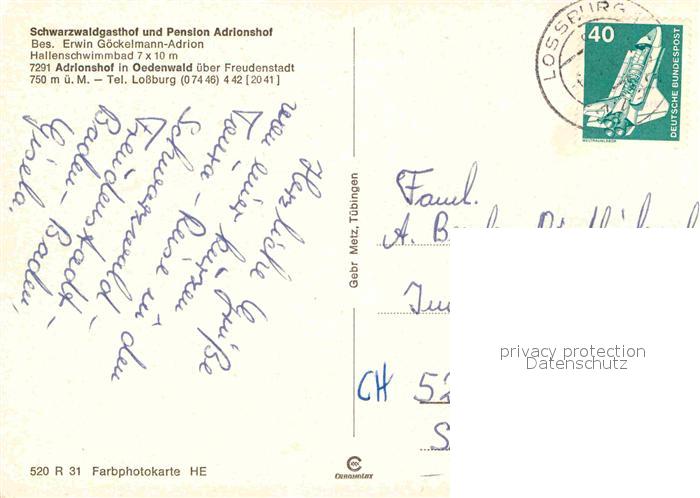 Schwarzwaldgasthof und Pension Adrionshof
Bes. Erwin Göckelmann-Adrion
Hallenschwimmbad 7 x 10 m
7291 Adrionshof in Oedenwald über Freudenstadt
750 m ü. M. — Tel. Loßburg (0 74 46) 4 42 [20 41]
LOSSBURG
40
DEUTSCHE BUNDESPOST
WELTRAUMLABOR
Herzliche Grüße
von einer kurzen
Reise in den
Schwarzwald
Freudenstadt-
Baden-Baden,
Gisela.
Gebr Metz, Tübingen
Faml.
A.
CH 52
S
privacy protection
Datenschutz
520 R 31 Farbphotokarte HE
CHROMOLUX